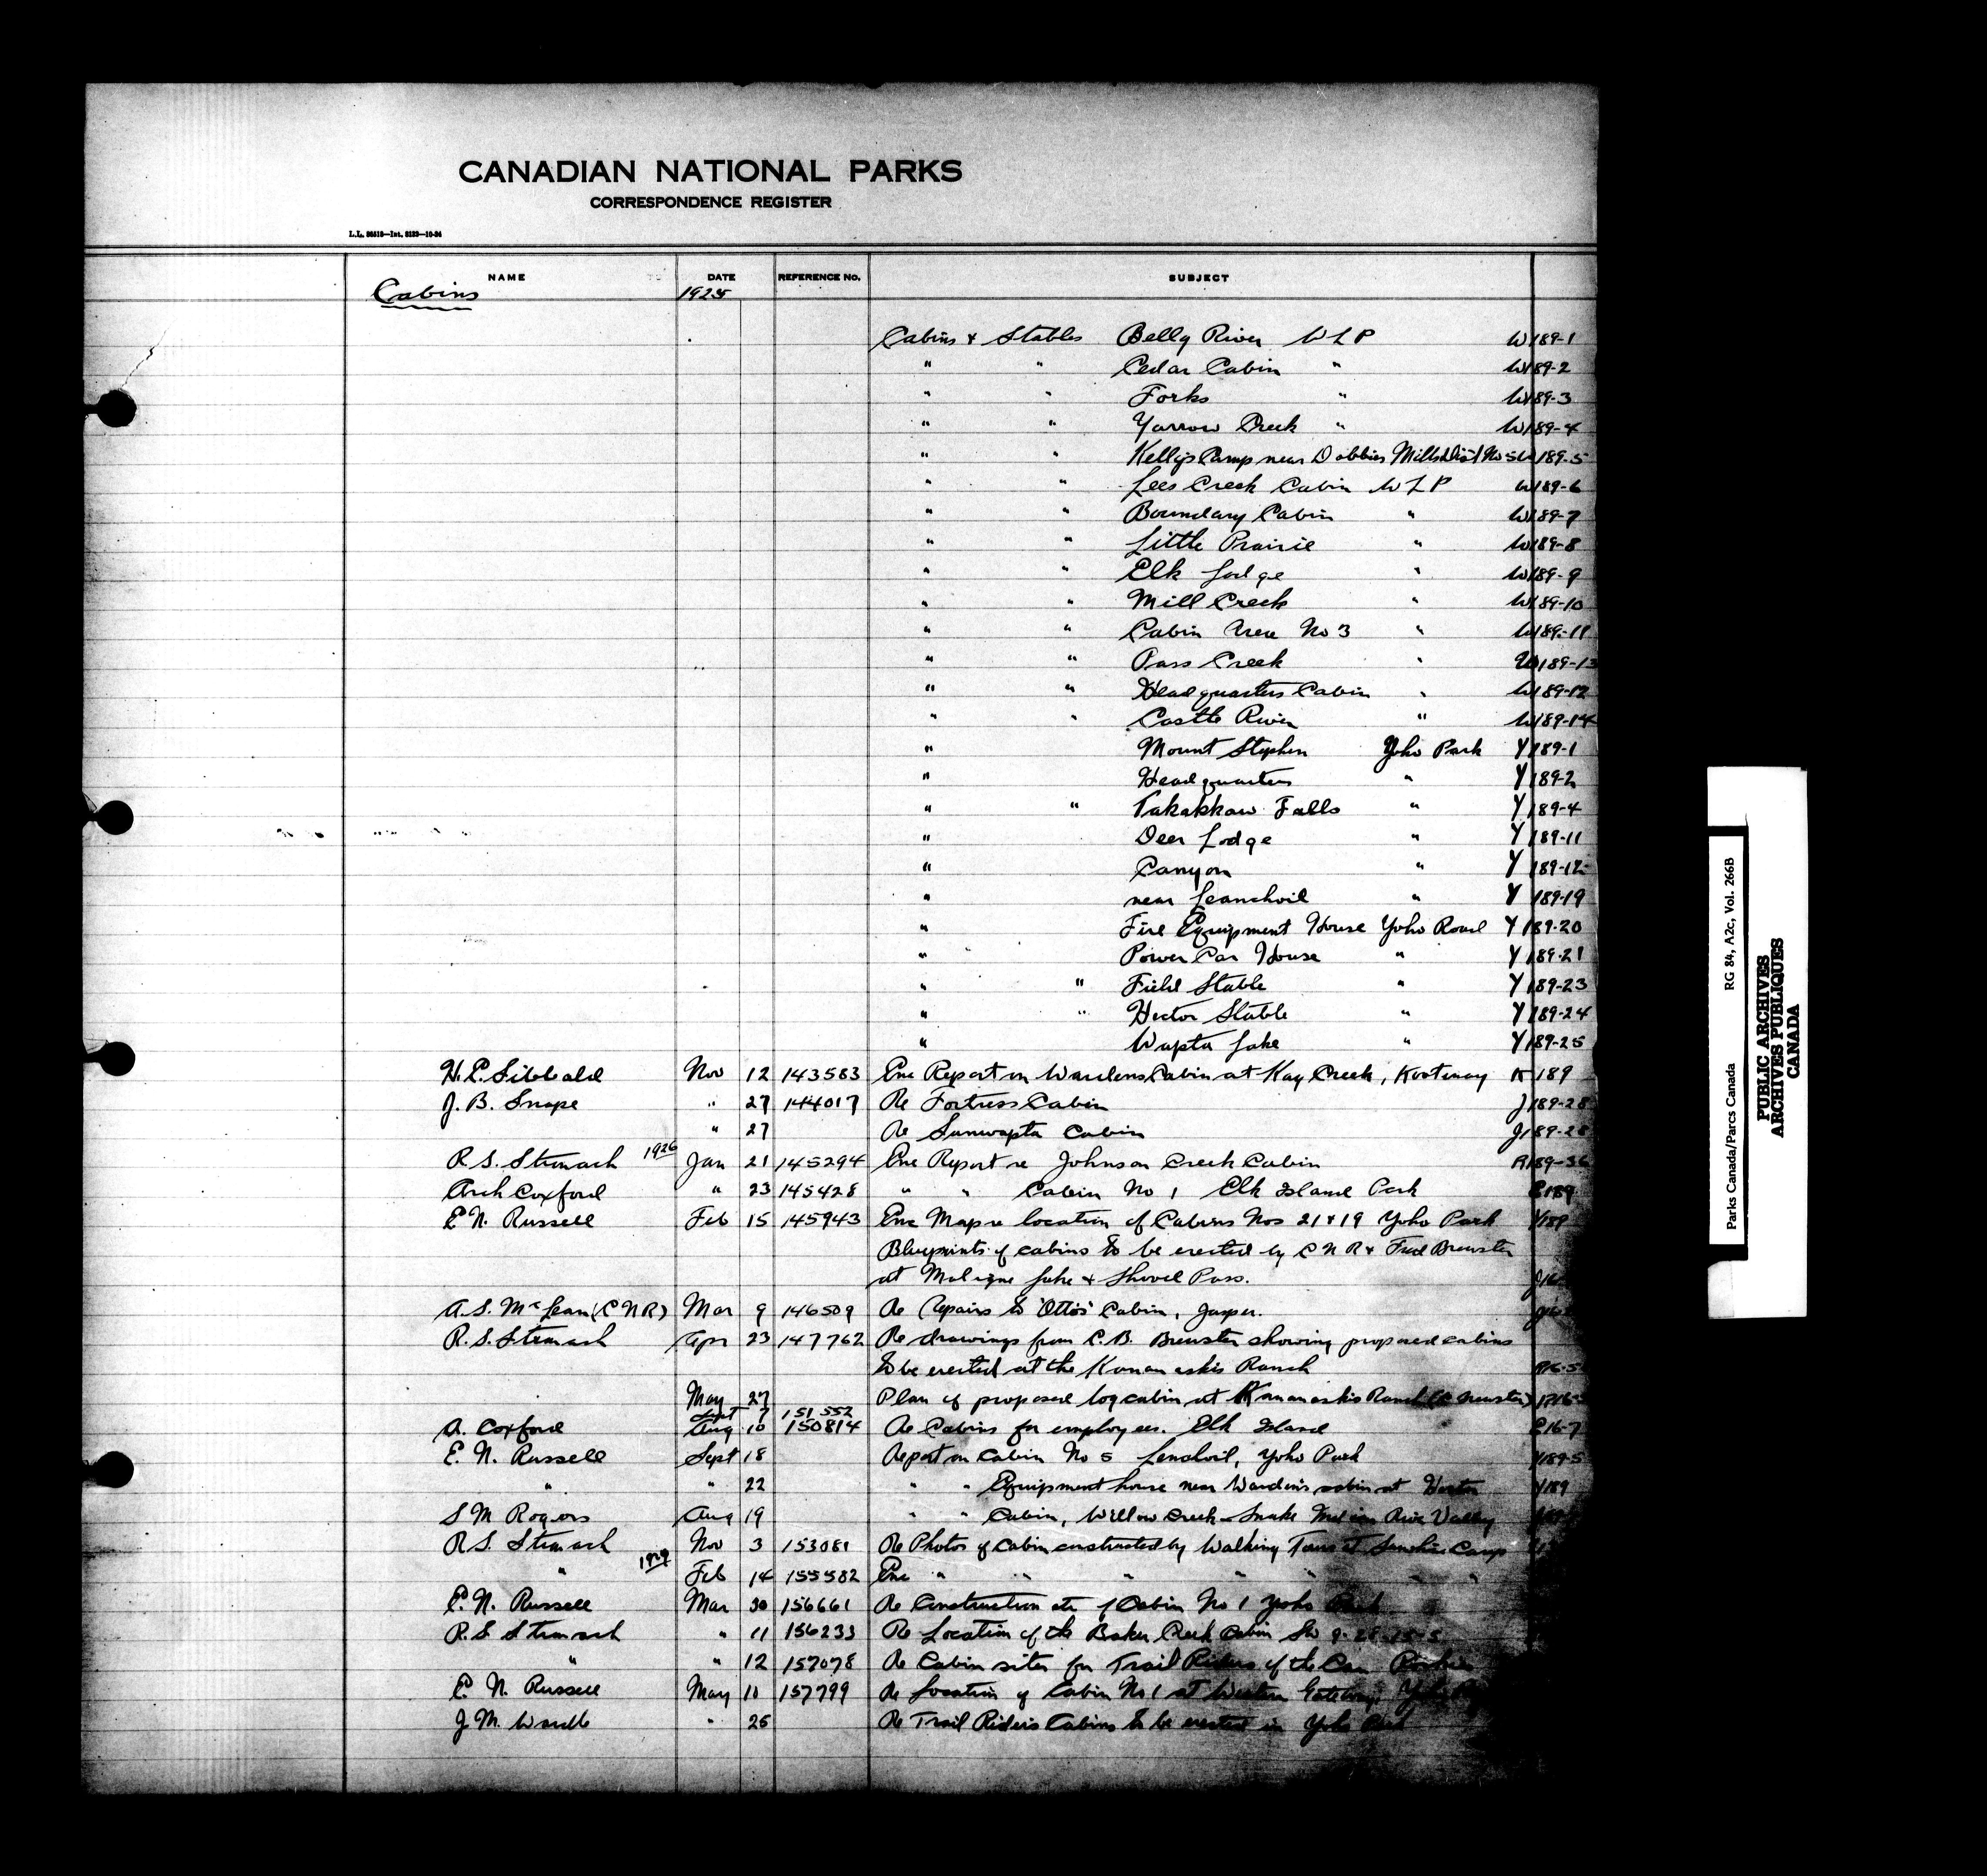 CANADIAN NATIONAL PARKS
CORRESPONDENCE REGISTER
L.L. 36513—Int. 8133—10-24
NAME DATE REFERENCE No. SUBJECT
Cabins 1925
Cabins & Stables Belly River W L P W189-1
" " Cedar Cabin " W189-2
" " Forks " W189-3
" " Yarrow Creek " W189-4
" " Kelly's Camp near Dobbies Mills Dist No 5 W189-5
" " Lees Creek Cabin W L P W189-6
" " Boundary Cabin " W189-7
" " Little Prairie " W189-8
" " Elk Lodge " W189-9
" " Mill Creek " W189-10
" " Cabin Area No 3 " W189-11
" " Pass Creek " W189-13
" " Headquarters Cabin " W189-12
" " Castle River " W189-14
" Mount Stephen Yoho Park Y189-1
" Headquarters " Y189-2
" " Takakkaw Falls " Y189-4
" Deer Lodge " Y189-11
" Canyon " Y189-12
" near Leanchoil " Y189-19
" Fire Equipment House Yoho Road Y189-20
" Power Car House " Y189-21
" " Field Stable " Y189-23
" " Hector Stable " Y189-24
" Wapta Lake " Y189-25
H. E. Sibbald Nov 12 143583 Enc Report on Wardens Cabin at Kay Creek, Kootenay K189
J. B. Snape " 27 144017 Re Fortress Cabin J189-28
" 27 Re Sunwapta Cabin J189-28
R. S. Stronach 1926 Jan 21 145294 Enc Report re Johnson Creek Cabin R189-36
Arch Coxford " 23 145428 " " Cabin No 1 Elk Island Park E189
E N. Russell Feb 15 145943 Enc Map re location of Cabins Nos 21 & 19 Yoho Park Y189
Blueprints of cabins to be erected by C N R & Fred Brewster
at Maligne Lake & Shovel Pass.
A. S. McLean (C N R) Mar 9 146509 Re Repairs to 'Otto's' Cabin, Jasper.
R. S. Stronach Apr 23 147762 Re drawings from C. B. Brewster showing proposed cabins
to be erected at the Kananaskis Ranch R16-5
May 27 Plan of proposed log cabin at Kananaskis Ranch
Sept 7 151552
A. Coxford Aug 10 150814 Re Cabins for employees. Elk Island E16-7
E. N. Russell Sept 18 Report on Cabin No 5 Lenchoil, Yoho Park Y189-5
" " 22 " " Equipment house near Warden's cabin at Hector Y189
S M Rogers Aug 19 " " Cabin, Willow Creek - Snake Indian River Valley
R S. Stronach Nov 3 153081 Re Photos of Cabin constructed by Walking Tours at Sunshine Camp
" 1927 Feb 14 155582 Enc " " " " " " "
E. N. Russell Mar 30 156661 Re Construction etc of Cabin No 1 Yoho Park
R. S. Stronach " 11 156233 Re Location of the Baker Creek Cabin
" " 12 157078 Re Cabin sites for Trail Riders of the Can Rockies
E. N. Russell May 10 157799 Re Location of Cabin No 1 at Western Gateway,
J. M. Wardle " 25 Re Trail Riders Cabins to be erected in Yoho Park
Parks Canada/Parcs Canada RG 84, A2c, Vol. 266B
PUBLIC ARCHIVES
ARCHIVES PUBLIQUES
CANADA